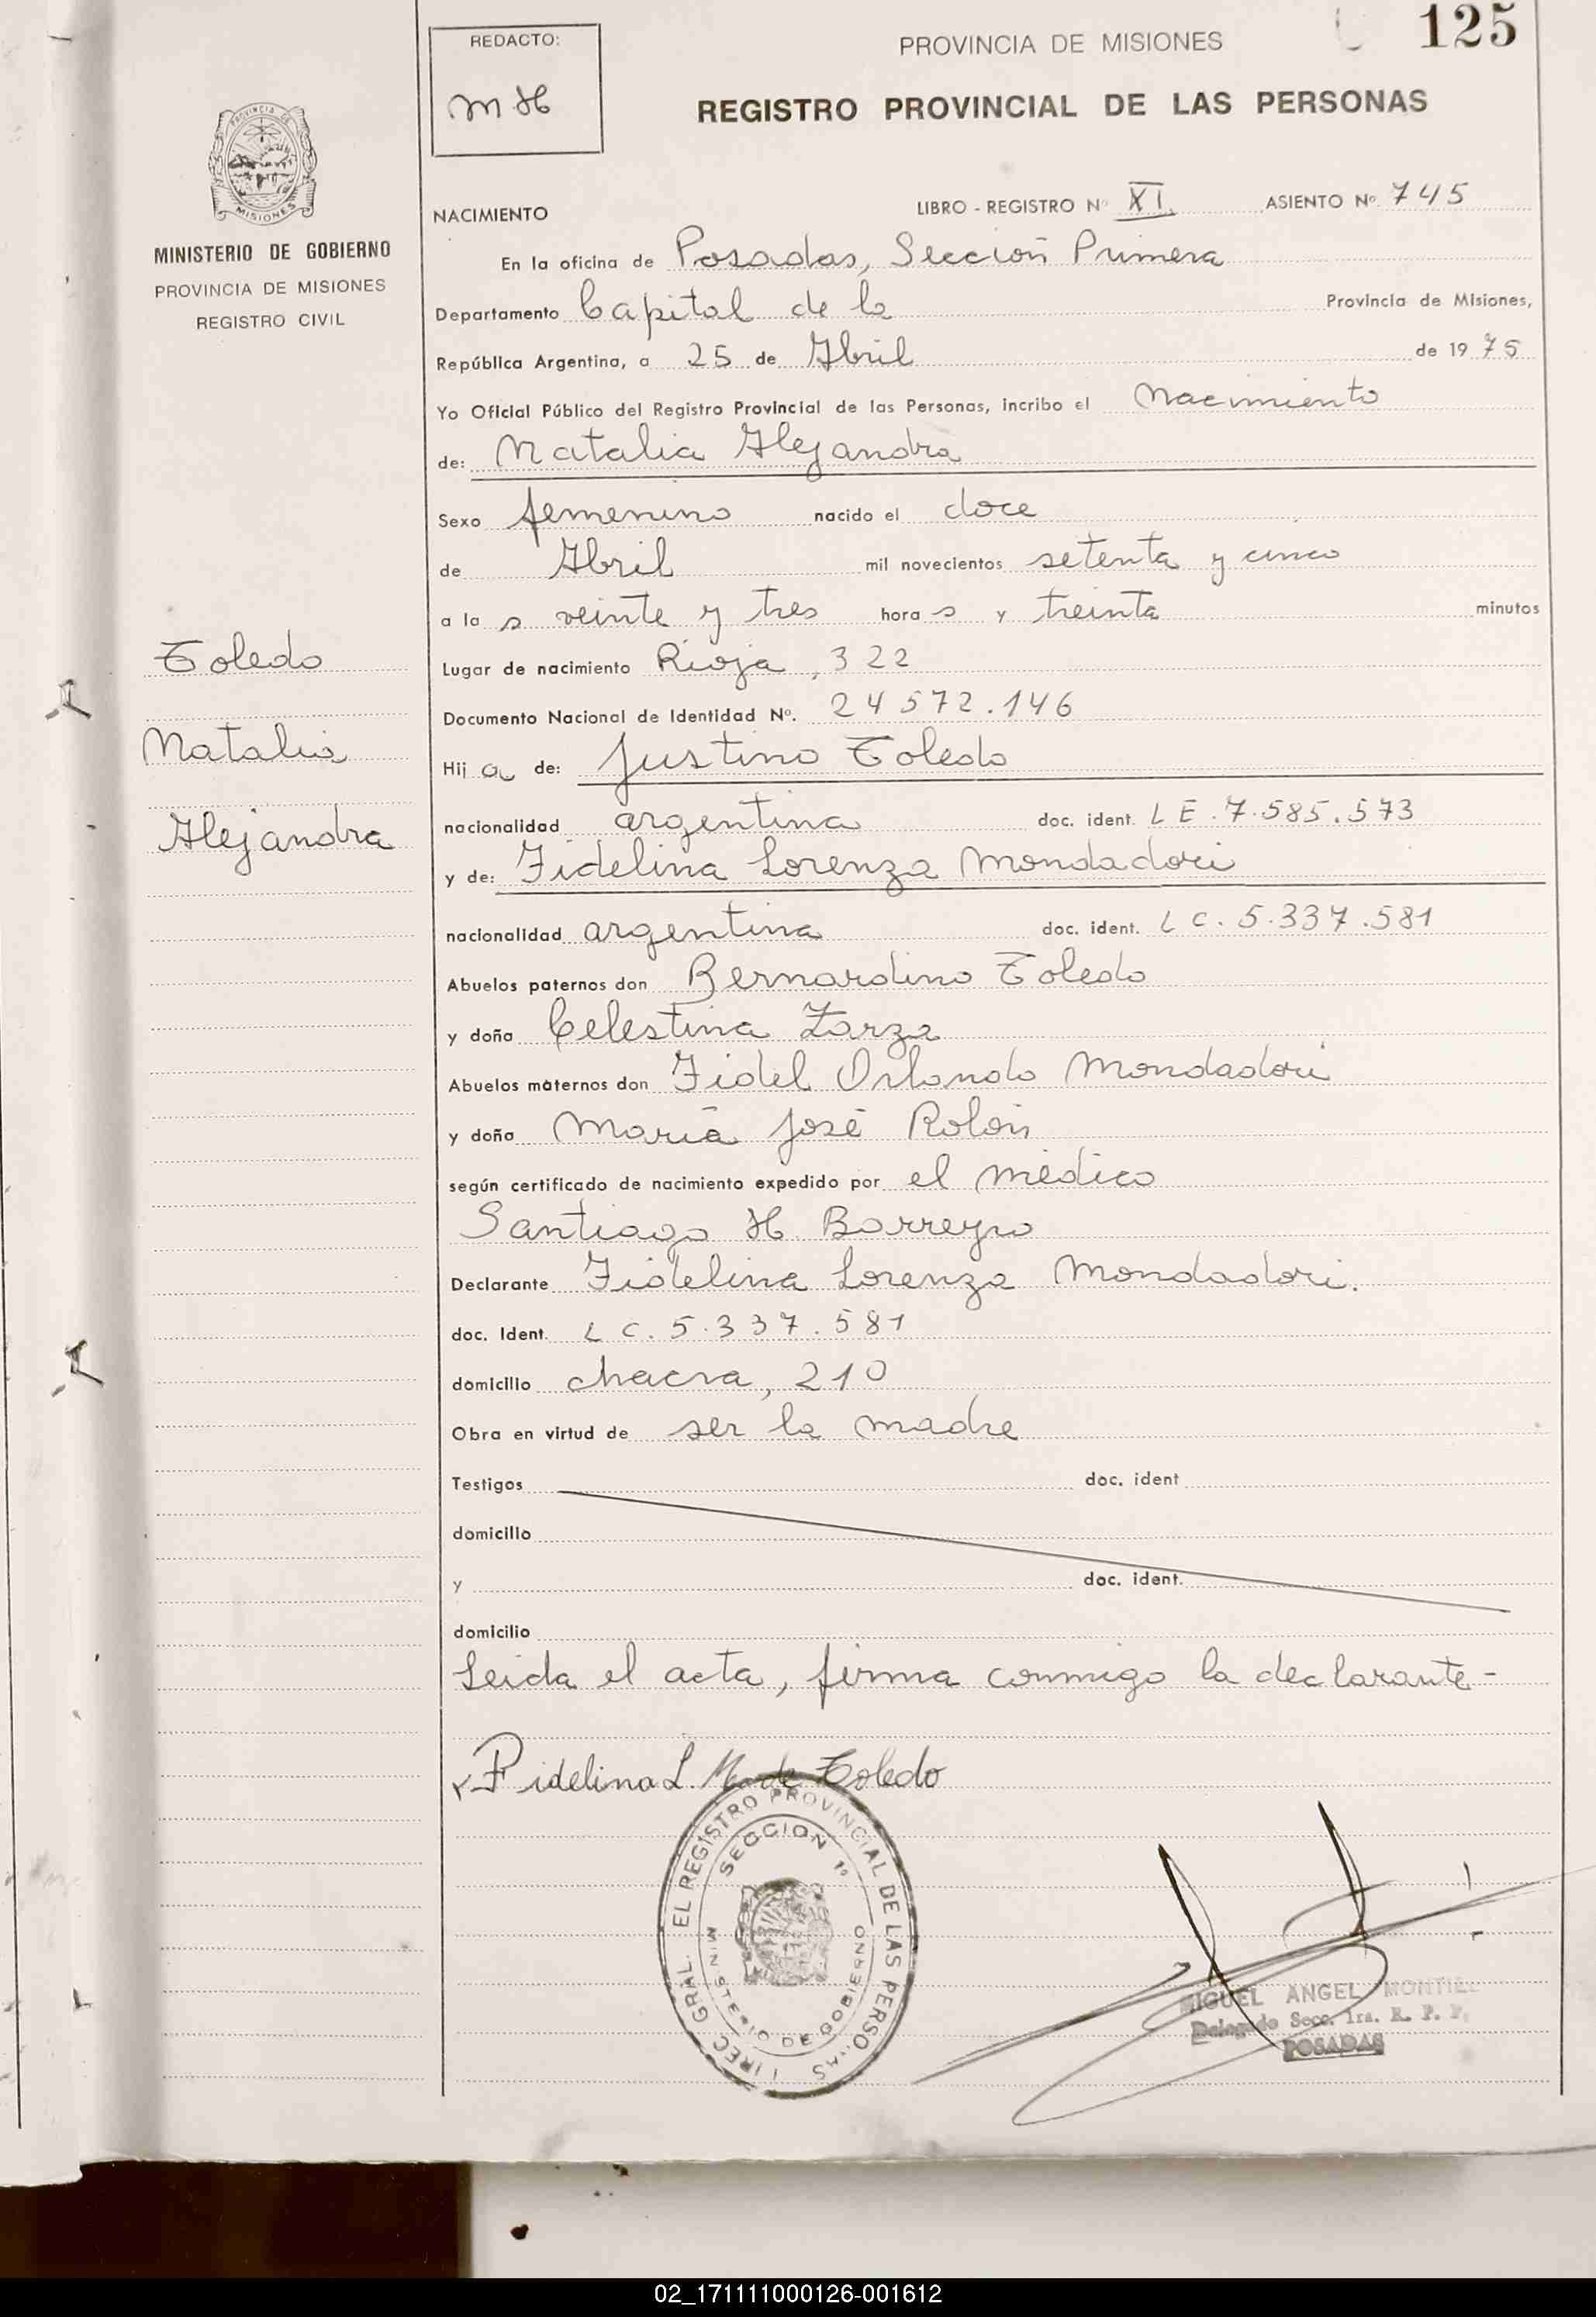 REDACTO:
MH
PROVINCIA DE MISIONES
125
REGISTRO PROVINCIAL DE LAS PERSONAS
PROVINCIA DE
MISIONES
MINISTERIO DE GOBIERNO
PROVINCIA DE MISIONES
REGISTRO CIVIL
Toledo
Natalia
Alejandra
NACIMIENTO LIBRO - REGISTRO Nº XI. ASIENTO Nº 745
En la oficina de Posadas, Sección Primera
Departamento Capital de la Provincia de Misiones,
República Argentina, a 25 de Abril de 1975
Yo Oficial Público del Registro Provincial de las Personas, incribo el Nacimiento
de: Natalia Alejandra
Sexo femenino nacido el doce
de Abril mil novecientos setenta y cinco
a la s veinte y tres hora s y treinta minutos
Lugar de nacimiento Rioja, 322
Documento Nacional de Identidad Nº. 24572.146
Hij a de: Justino Toledo
nacionalidad argentina doc. ident. LE.7.585.573
y de: Fidelina Lorenza Mondadori
nacionalidad argentina doc. ident. LC.5.337.581
Abuelos paternos don Bernardino Toledo
y doña Celestina Zarza
Abuelos maternos don Fidel Orlando Mondadori
y doña María José Rolón
según certificado de nacimiento expedido por el médico
Santiago H. Barreyro
Declarante Fidelina Lorenza Mondadori.
doc. Ident. LC.5.337.581
domicilio chacra, 210
Obra en virtud de ser la madre
Testigos doc. ident
domicilio
y doc. ident.
domicilio
Leida el acta, firma conmigo la declarante-
Fidelina L. M. de Toledo
DIREC. GRAL. EL REGISTRO PROVINCIAL DE LAS PERSONAS
SECCION 1º
MINISTERIO DE GOBIERNO
MIGUEL ANGEL MONTIEL
Delegado Secc. 1ra. R. P. P.
POSADAS
02_171111000126-001612